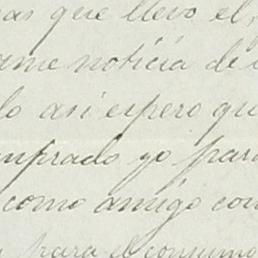 as que llevo el,
ame noticia de
lo asi espero qu
mprado yo para
como amigo con
para el consumo